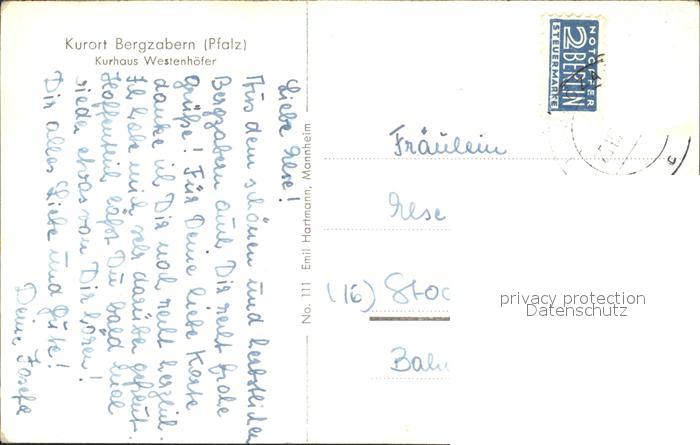 Kurort Bergzabern (Pfalz)
Kurhaus Westenhöfer
Liebe Ilse!
Aus dem schönen und herbstlichen
Bergzabern auch Dir recht frohe
Grüße! Für Deine liebe Karte
danke ich Dir noch recht herzlich.
Ich habe mich sehr darüber gefreut.
Hoffentlich läßt Du bald mal
wieder etwas von Dir hören!
Dir alles Liebe und Gute!
Deine Josefa
No. 111 Emil Hartmann, Mannheim
NOTOPFER
2 BERLIN
STEUERMARKE
Fräulein
Ilse
(16) Stoc
Bahn
privacy protection
Datenschutz